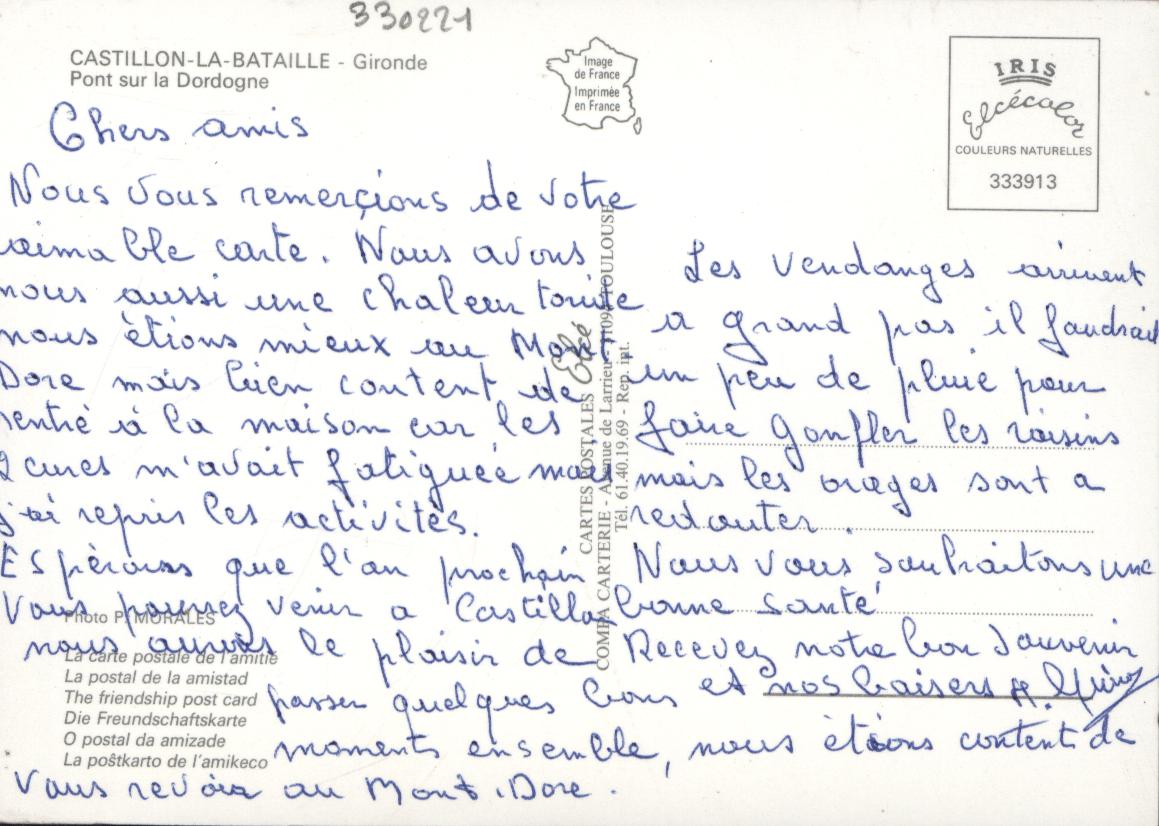 330221
CASTILLON-LA-BATAILLE - Gironde
Pont sur la Dordogne
Image
de France
Imprimée
en France
IRIS
Elcécolor
COULEURS NATURELLES
333913
Chers amis
Nous vous remerçions de votre
aimable carte. Nous avons
nous aussi une chaleur torride
nous ètions mieux au Mont
Dore mais bien content de
rentré à la maison car les
2 cures m'avait fatiguée mais
j'ai repris les activités.
Espèrons que l'an prochain
vous pourrez venir a Castillon
nous aurons le plaisir de
passer quelques bons
moments ensemble, nous étions content de
vous revoir au Mont Dore.
Les vendanges arrivent
a grand pas il faudrait
un peu de pluie pour
faire gonfler les raisins
mais les orages sont a
redouter.
Nous vous souhaitons une
bonne santé
Recevez notre bon souvenir
et nos baisers
CARTES POSTALES Elcé
COMPA CARTERIE - Avenue de Larrieu - TOULOUSE
Tél. 61.40.19.69 - Rep. int.
Photo P. MORALES
La carte postale de l'amitié
La postal de la amistad
The friendship post card
Die Freundschaftskarte
O postal da amizade
La poŝtkarto de l'amikeco